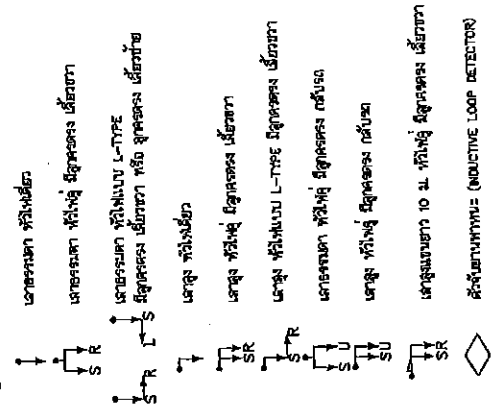 เสาธรรมดา หัวไฟเดี่ยว
S R เสาธรรมดา หัวไฟคู่ มีลูกศรตรง เลี้ยวขวา
S R L S เสาธรรมดา หัวไฟแบบ L-TYPE
มีลูกศรตรง เลี้ยวขวา หรือ ลูกศรตรง เลี้ยวซ้าย
เสาสูง หัวไฟเดี่ยว
SR เสาสูง หัวไฟคู่ มีลูกศรตรง เลี้ยวขวา
S R เสาสูง หัวไฟแบบ L-TYPE มีลูกศรตรง เลี้ยวขวา
S U เสาธรรมดา หัวไฟคู่ มีลูกศรตรง กลับรถ
SU เสาสูง หัวไฟคู่ มีลูกศรตรง กลับรถ
SR เสาสูงแขนยาว 10 ม. หัวไฟคู่ มีลูกศรตรง เลี้ยวขวา
ตัวจับยานพาหนะ (INDUCTIVE LOOP DETECTOR)